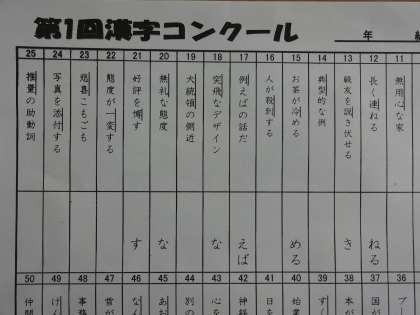 第1回漢字コンクール
年
11
無用心な家
12
長く連ねる
ねる
13
を説き伏せる
き
14
典型的な例
15
お茶が冷める
める
16
人が殺到する
17
例えばの話だ
えば
18
突飛なデザイン
な
19
大統領の側近
20
無礼な態度
な
21
好評を博す
す
22
態度が一変する
23
悲喜こもごも
24
写真を添付する
25
推量の助動詞
36
37
国が
38
本が
39
40
始業
41
日を
42
神経
43
心を
44
別の
45
あお
46
なん
47
雪が
48
事務
49
げん
50
仲間